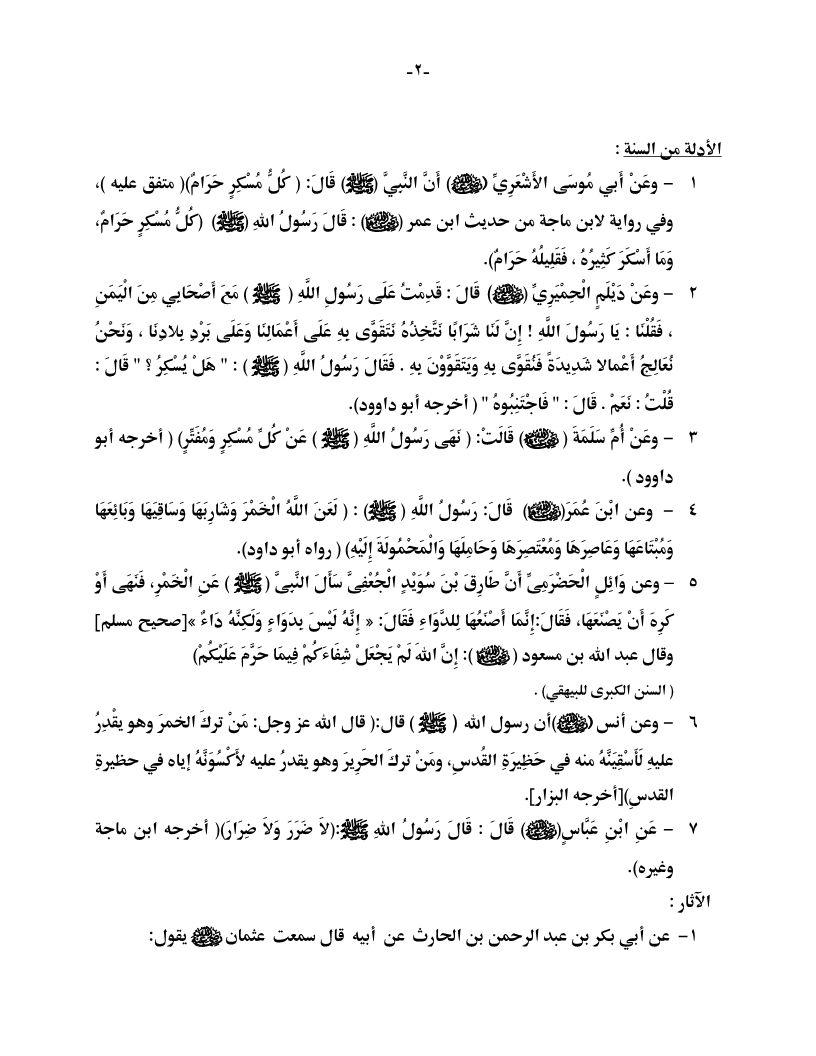 -٢-
الأدلة من السنة :
١ - وعَنْ أَبي مُوسَى الأَشْعَرِيِّ (رضي الله عنه) أَنَّ النَّبِيَّ (ﷺ) قَالَ: ( كُلُّ مُسْكِرٍ حَرَامٌ)( متفق عليه )،
وفي رواية لابن ماجة من حديث ابن عمر (رضي الله عنه) : قَالَ رَسُولُ اللهِ (ﷺ) (كُلُّ مُسْكِرٍ حَرَامٌ،
وَمَا أَسْكَرَ كَثِيرُهُ ، فَقَلِيلُهُ حَرَامٌ).
٢ - وعَنْ دَيْلَمٍ الْحِمْيَرِيِّ (رضي الله عنه) قَالَ : قَدِمْتُ عَلَى رَسُولِ اللَّهِ ( ﷺ ) مَعَ أَصْحَابِي مِنَ الْيَمَنِ
، فَقُلْنَا : يَا رَسُولَ اللَّهِ ! إِنَّ لَنَا شَرَابًا نَتَّخِذُهُ نَتَقَوَّى بِهِ عَلَى أَعْمَالِنَا وَعَلَى بَرْدِ بِلادِنَا ، وَنَحْنُ
نُعَالِجُ أَعْمالا شَدِيدَةً فَنُقَوَّى بِهِ وَيَتَقَوَّوْنَ بِهِ . فَقَالَ رَسُولُ اللَّهِ ( ﷺ ) : " هَلْ يُسْكِرُ ؟ " قَالَ :
قُلْتُ : نَعَمْ . قَالَ : " فَاجْتَنِبُوهُ " ( أخرجه أبو داوود).
٣ - وعَنْ أُمِّ سَلَمَةَ ( رضي الله عنها) قَالَتْ: ( نَهَى رَسُولُ اللَّهِ ( ﷺ ) عَنْ كُلِّ مُسْكِرٍ وَمُفَتِّرٍ) ( أخرجه أبو
داوود ).
٤ - وعن ابْنَ عُمَرَ(رضي الله عنهما) قَالَ: رَسُولُ اللَّهِ ( ﷺ) : ( لَعَنَ اللَّهُ الْخَمْرَ وَشَارِبَهَا وَسَاقِيَهَا وَبَائِعَهَا
وَمُبْتَاعَهَا وَعَاصِرَهَا وَمُعْتَصِرَهَا وَحَامِلَهَا وَالْمَحْمُولَةَ إِلَيْهِ) ( رواه أبو داود).
٥ - وعن وَائِلٍ الْحَضْرَمِىِّ أَنَّ طَارِقَ بْنَ سُوَيْدٍ الْجُعْفِىَّ سَأَلَ النَّبِىَّ (ﷺ ) عَنِ الْخَمْرِ، فَنَهَى أَوْ
كَرِهَ أَنْ يَصْنَعَهَا، فَقَالَ:إِنَّمَا أَصْنَعُهَا لِلدَّوَاءِ فَقَالَ: « إِنَّهُ لَيْسَ بِدَوَاءٍ وَلَكِنَّهُ دَاءٌ »[صحيح مسلم]
وقال عبد الله بن مسعود ( رضي الله عنه ): إِنَّ اللهَ لَمْ يَجْعَلْ شِفَاءَكُمْ فِيمَا حَرَّمَ عَلَيْكُمْ)
( السنن الكبرى للبيهقي) .
٦ - وعن أنس (رضي الله عنه)أن رسول الله ( ﷺ ) قال:( قال الله عز وجل: مَنْ تركَ الخمرَ وهو يقْدِرُ
عليهِ لَأَسْقِيَنَّهُ منه في حَظِيرَةِ القُدسِ، ومَنْ تركَ الحَرِيرَ وهو يقدرُ عليه لأَكْسُوَنَّهُ إياه في حظيرةِ
القدسِ)[أخرجه البزار].
٧ - عَنِ ابْنِ عَبَّاسٍ(رضي الله عنهما) قَالَ : قَالَ رَسُولُ اللهِ ﷺ:(لاَ ضَرَرَ وَلاَ ضِرَارَ)( أخرجه ابن ماجة
وغيره).
الآثار :
١- عن أبي بكر بن عبد الرحمن بن الحارث عن أبيه قال سمعت عثمان رضي الله عنه يقول: